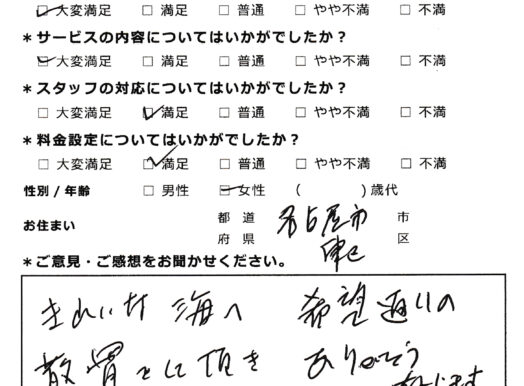 ☑大変満足 □満足 □普通 □やや不満 □不満
＊サービスの内容についてはいかがでしたか？
☑大変満足 □満足 □普通 □やや不満 □不満
＊スタッフの対応についてはいかがでしたか？
□大変満足 ☑満足 □普通 □やや不満 □不満
＊料金設定についてはいかがでしたか？
□大変満足 ☑満足 □普通 □やや不満 □不満
性別/年齢 □男性 ☑女性 （ ）歳代
お住まい 都 道 府 県 名古屋市 市 区
＊ご意見・ご感想をお聞かせください。
きれいな 海へ 希望通りの
散骨として頂き ありがとう